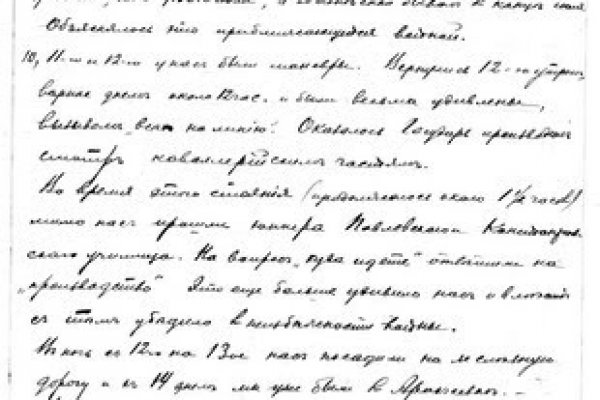 Объяснялось это приближающейся войной.
10, 11-го и 12-го у нас были маневры. Вернулись 12-го утром,
вернее днем около 12 час. и были весьма удивлены,
вызовом „всех на линию“. Оказалось Государь производил
смотръ кавалерійскимъ частямъ.
Во время этого стояния (продолжалось около 1½ часов)
мимо нас прошли юнкера Павловского
ского училища. На вопрос „куда идете“ отвечали на
„производство“ Это еще больше удивило нас и вместе
с тем убедило в неизбежности войны.
В ночь с 12го на 13ое нас посадили на железную
дорогу и к 14 днем мы уже были в